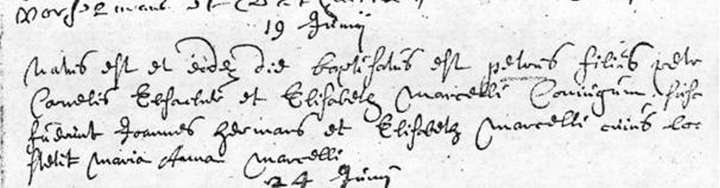 19 Junij
Natus est et eodē die baptisatus est petrus filius petr
Cornelis et Elisabetζ Marcelli Coniugum susc
fuerunt Joannes hermans et Elisabetζ Marcelli cuius loc
stetit Maria Anna Marcelli
24 Junij